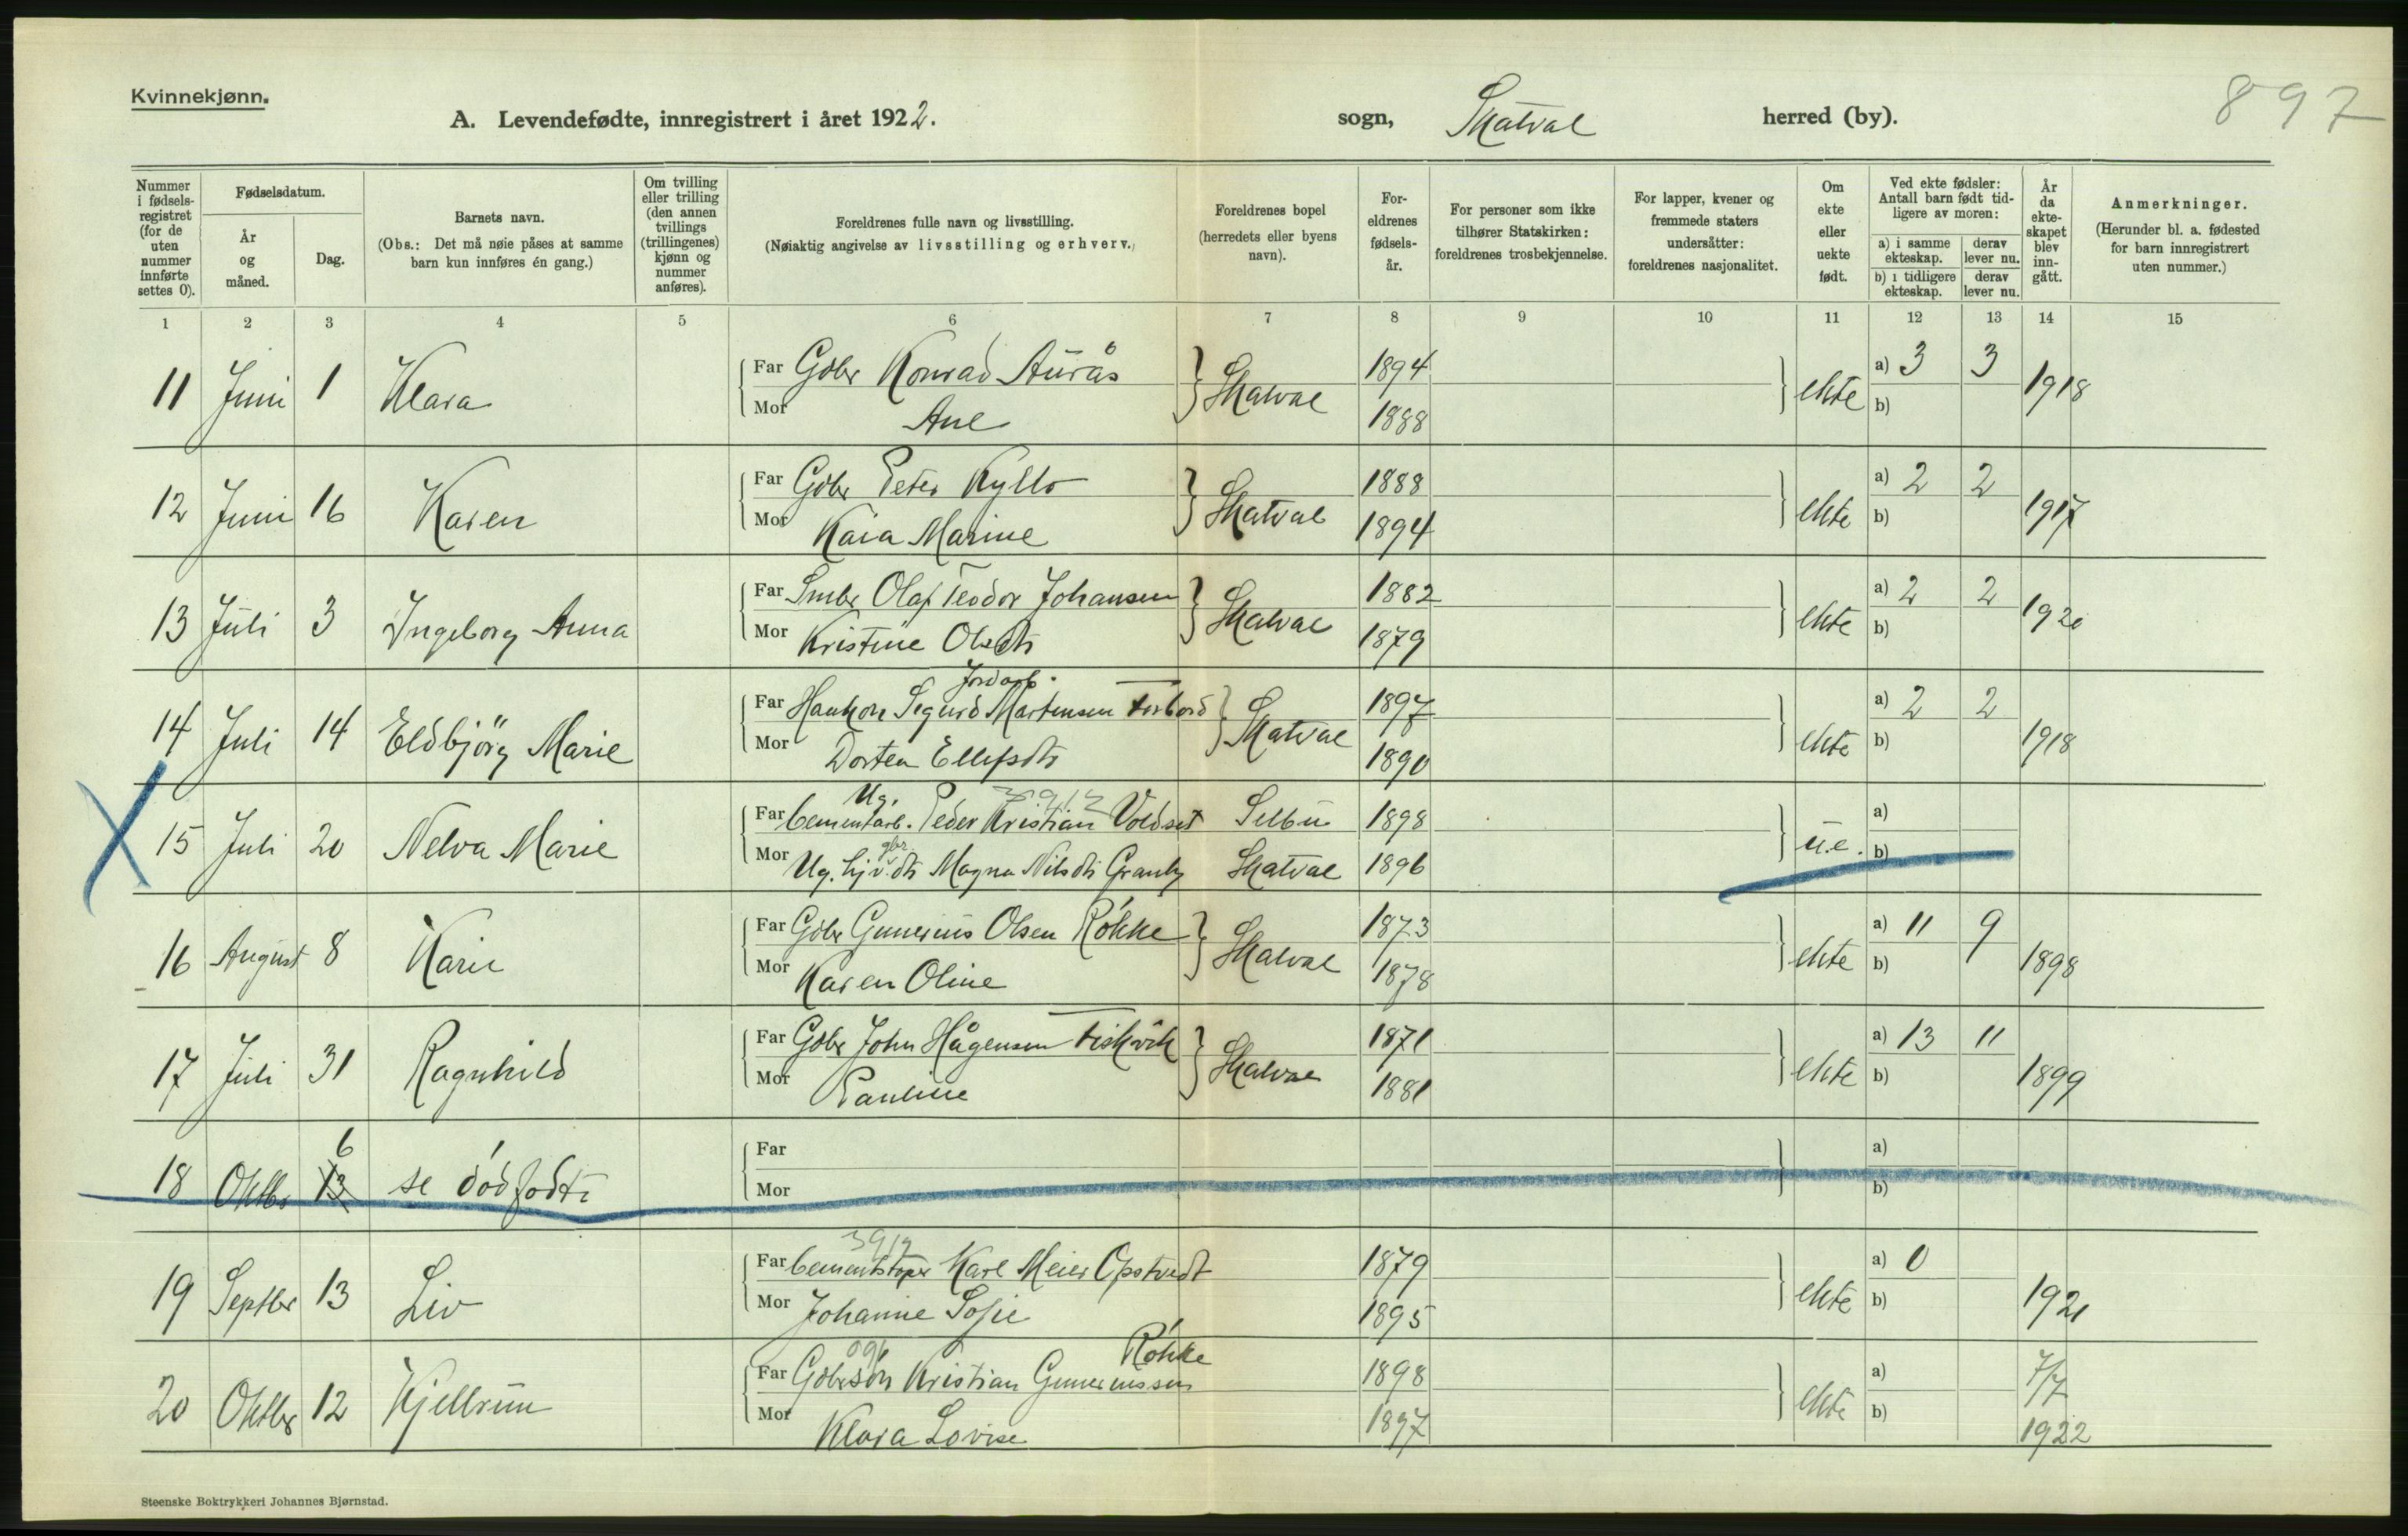 Kvinnekjønn.
A. Levendefødte, innregistrert i året 1922.
sogn, Skatval herred (by).
897
Nummer i fødselsregistret (for de uten nummer innførte settes 0).
Fødselsdatum.
År og måned.
Dag.
Barnets navn.
(Obs.: Det må nøie påses at samme barn kun innføres én gang.)
Om tvilling eller trilling (den annen tvillings (trillingenes) kjønn og nummer anføres).
Foreldrenes fulle navn og livsstilling.
(Nøiaktig angivelse av livsstilling og erhverv.)
Foreldrenes bopel (herredets eller byens navn).
Foreldrenes fødselsår.
For personer som ikke tilhører Statskirken: foreldrenes trosbekjennelse.
For lapper, kvener og fremmede staters undersåtter: foreldrenes nasjonalitet.
Om ekte eller uekte født.
Ved ekte fødsler: Antall barn født tidligere av moren:
a) i samme ekteskap.
derav lever nu.
b) i tidligere ekteskap.
derav lever nu.
År da ekteskapet blev inngått.
Anmerkninger.
(Herunder bl. a. fødested for barn innregistrert uten nummer.)
1 2 3 4 5 6 7 8 9 10 11 12 13 14 15
11 Juni 1 Klara Far Gdbr Konrad Aurås Skatval 1894 ekte a) 3 3 1918
Mor Ane 1888 b)
12 Juni 16 Karen Far Gdbr Peter Kyllo Skatval 1888 ekte a) 2 2 1917
Mor Kaia Marine 1894 b)
13 Juli 3 Ingeborg Anna Far Smbr Olaf Teodor Johansen Skatval 1882 ekte a) 2 2 1920
Mor Kristine Olsdtr 1879 b)
Jordarb.
14 Juli 14 Eldbjörg Marie Far Haakon Sigurd Martensen Forbord Skatval 1897 ekte a) 2 2 1918
Mor Dortea Ellefsdtr 1890 b)
Ug. 3912
15 Juli 20 Nelva Marie Far Cementarb. Peder Kristian Voldset Selbu 1898 u.e. a)
gbr.
Mor Ug. hjv. dtr Magna Nilsdtr Granby Skatval 1896 b)
16 August 8 Kari Far Gdbr Gunerius Olsen Røkke Skatval 1873 ekte a) 11 9 1898
Mor Karen Oline 1878 b)
17 Juli 31 Ragnhild Far Gdbr John Hågensen Fiskvik Skatval 1871 ekte a) 13 11 1899
Mor Pauline 1881 b)
6
18 Oktbr 13 se dødfødte Far a)
Mor b)
3912
19 Septbr 13 Liv Far Cementstøper Karl Meier Opstvedt 1879 ekte a) 0 1921
Mor Johanne Sofie 1895 b)
091 Røkke
20 Oktbr 12 Kjellrun Far Gdbrsøn Kristian Guneriussen 1898 ekte a) 7/7 1922
Mor Klara Lovise 1897 b)
Steenske Boktrykkeri Johannes Bjørnstad.